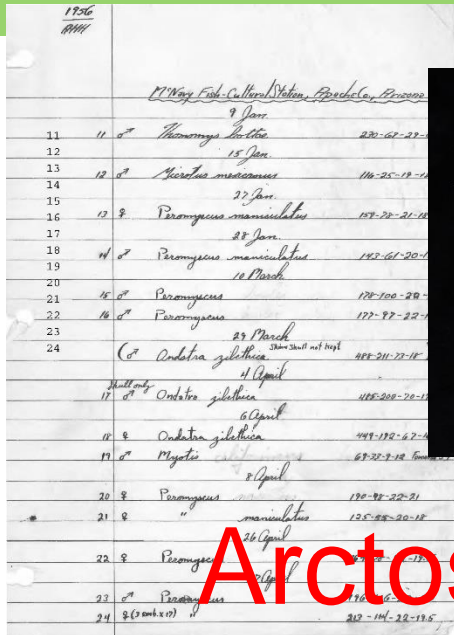 1956
McNary Fish-Cultural Station, Apache Co., Arizona
9 Jan.
11 11 ♂ Thomomys bottae 230-67-29-
12 15 Jan.
13 12 ♂ Microtus mexicanus 116-25-19-
14 27 Jan.
15
16 13 ♀ Peromyscus maniculatus 159-78-21-18
17 28 Jan.
18 14 ♂ Peromyscus maniculatus 143-61-20-
19 10 March
20
21 15 ♂ Peromyscus 178-100-22-
22 16 ♂ Peromyscus 177-97-22-
23 29 March
24 (♂ Ondatra zibethica Skin & Skull not kept 488-211-73-18
4 April
Skull only
17 ♂ Ondatra zibethica 485-200-70-
6 April
18 ♀ Ondatra zibethica 449-192-67-
19 ♂ Myotis
8 April
20 ♀ Peromyscus 190-98-22-21
21 ♀ " maniculatus 125-55-20-18
26 April
22 ♀
April
23 ♂
24 ♀ (3 emb. x 17) " 213-114-22-19.5
Arctos